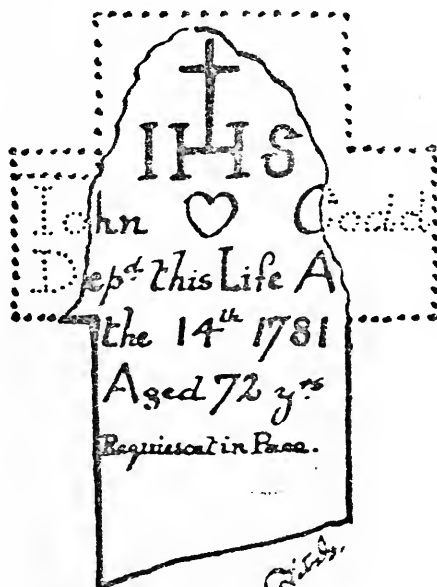 IHS
Iohn Codd
Depd this Life A
the 14th 1781
Aged 72 yrs
Requiescat in Pace.